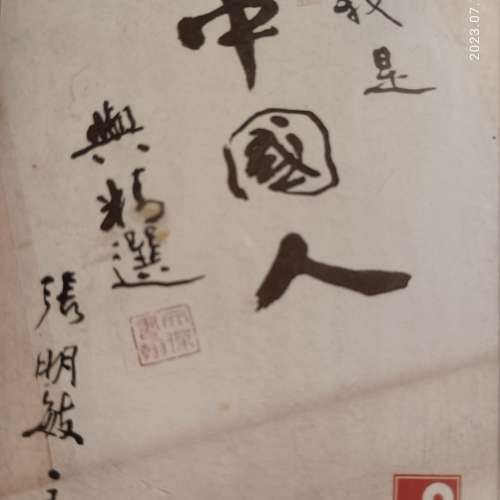 我是
中國人
與精選
張明敏
2023.07.